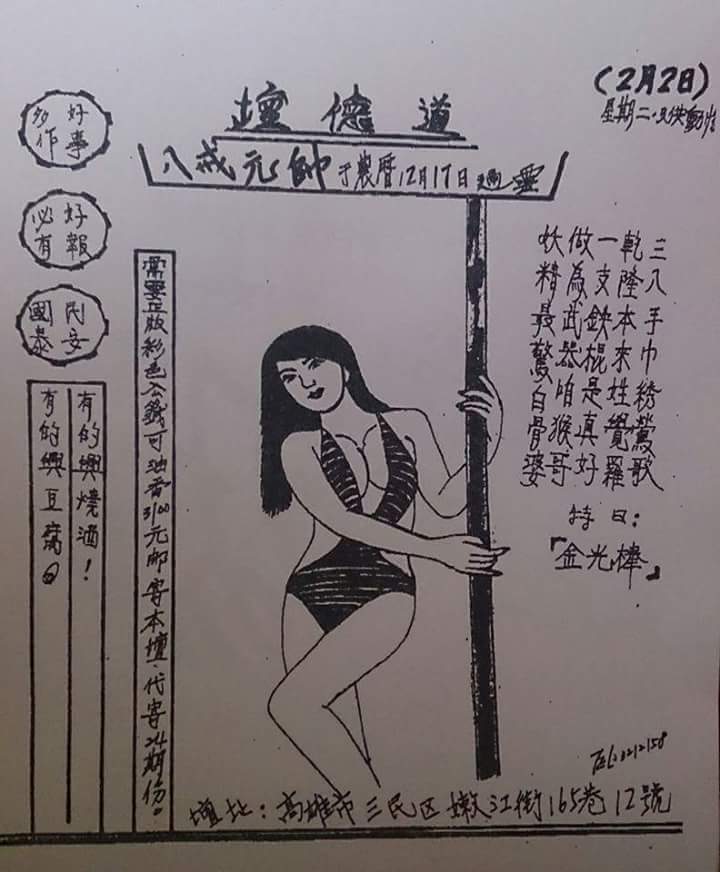 (2月2日)
星期二
道德壇
八戒元帥于農曆12月17日過靈
三八手巾務鶯歌
乾隆本來姓覺羅
一支鉄棍是真好
做為武器咱猴哥
妖精最驚白骨婆
特日:
『金光棒』
好事
多作
好報
必有
民安
國泰
需要正版彩色公籤可油香3100元郵寄本壇.代寄24期份。
有的興燒酒!
有的興豆腐
壇址:高雄市三民区嫩江街165巷12號